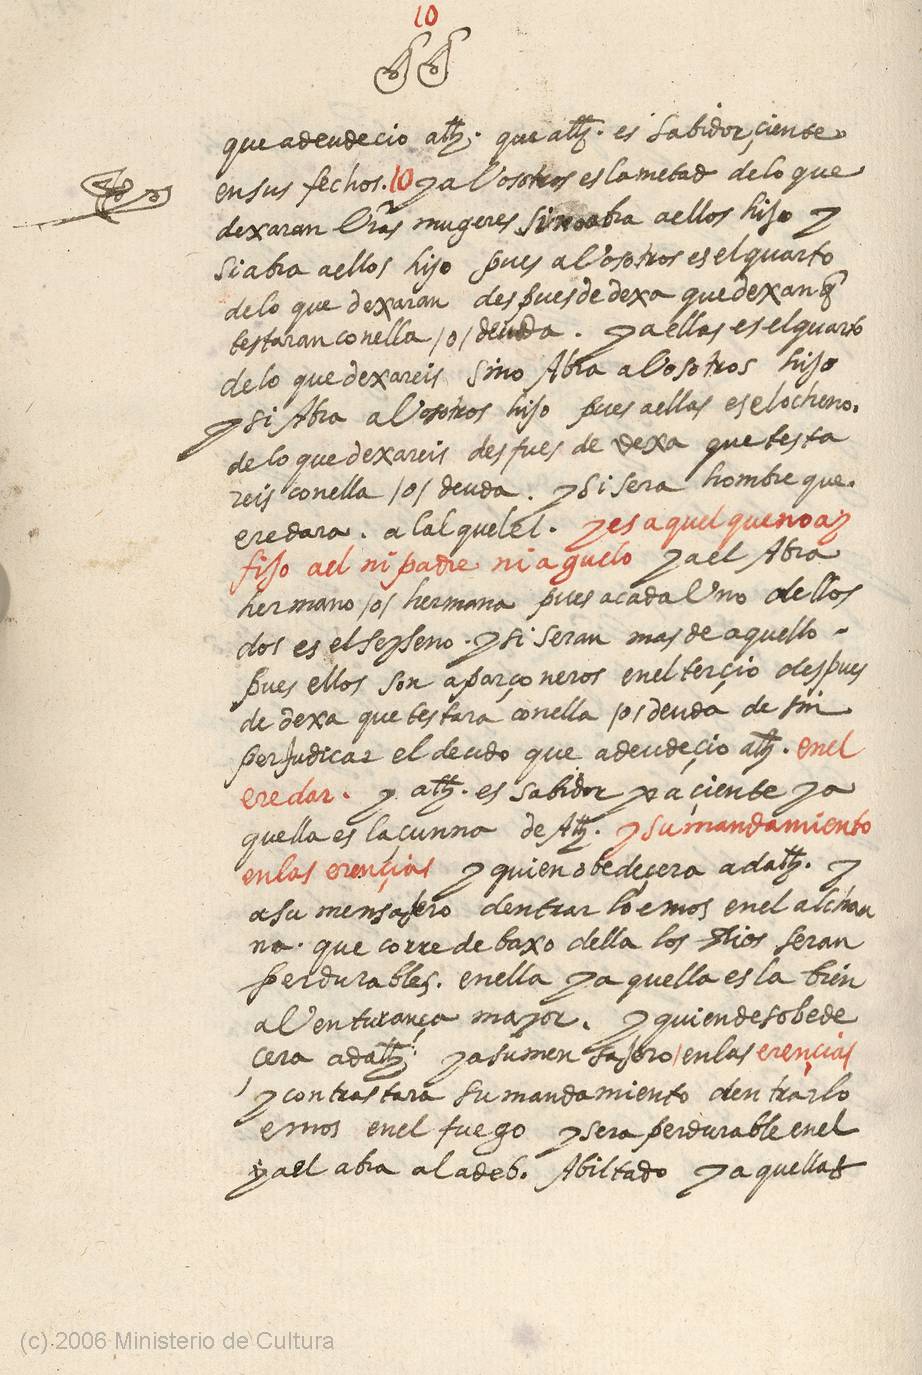 10
que adeudecio allh. que allh. es sabidor, çiente
en sus fechos. 10 y a vosotros es la metad de lo que
dexaran vras mugeres sino abra a ellos hijo y
si abra a ellos hijo pues a vosotros es el quarto
de lo que dexaran despues de dexa que dexan q
testaran con ella /o/ deuda. y a ellas es el quarto
de lo que dexareis sino Abra a vosotros hijo
y si Abra a vosotros hijo pues a ellas es el ocheno.
de lo que dexareis despues de dexa que testa
reis con ella /o/ deuda. y si sera hombre que.
eredara. alalquelel. y es aquel que no ay
fijo a el ni padre ni aguelo y a el Abra
hermano /o/ hermana pues a cada Vno dellos
dos es el seyseno. y si seran mas de aquello
pues ellos son aparçoneros en el terçio despues
de dexa que testara con ella /o/ deuda de sin
perjudicar el deudo que adeudeçio allh. en el
eredar. y allh. es sabidor paçiente y a
quella es la çunna de Allh. y su mandamiento
en las erençias y quien obedeçera ad allh. y
a su mensajero dentrar lo emos en el alchan
na. que corre debaxo della los Rios seran
perdurables. en ella y aquella es la bien
aVenturança mayor. y quien desobede
cera ad allh. y a su mensajero / en las erençias
y contrastara su mandamiento dentrar lo
emos en el fuego y sera perdurable en el
y a el abra aladeb. Abiltado y aquellas
(c) 2006 Ministerio de Cultura